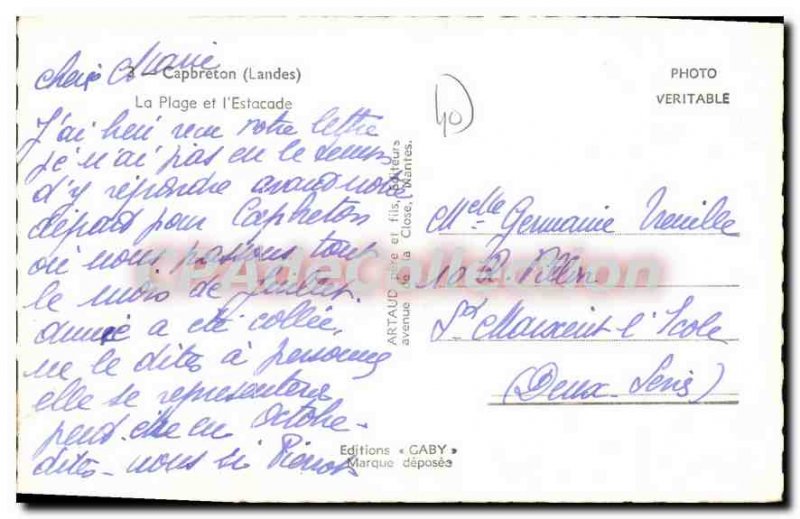 3 - Capbreton (Landes)
La Plage et l'Estacade
PHOTO
VERITABLE
40
J'ai recu votre lettre
je n'ai pas eu le temps
d'y répondre avant notre
départ pour Capbreton
où nous passons tout
le mois de Juillet.
a été collée,
ne le dites à personne
elle se représentera
peut être en Octobre-
dites-nous si
ARTAUD père et fils, Éditeurs
avenue de la Close, Nantes.
Melle Germaine
St Maixent l'Ecole
(Deux-Sèvres)
Editions « GABY »
Marque déposée
CPAdeCollection